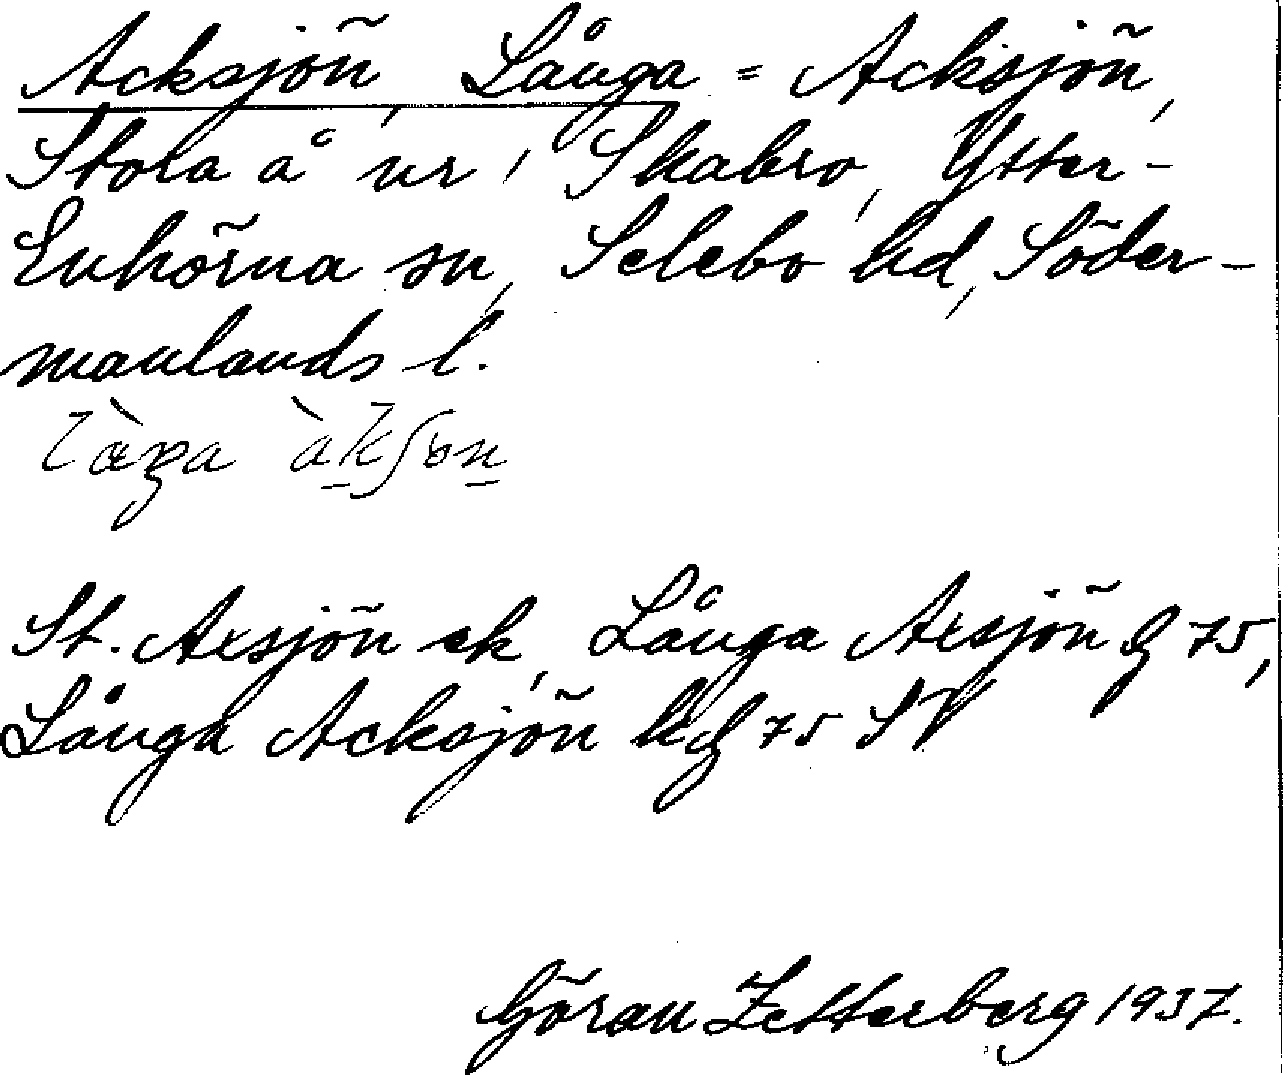 Acksjön, Långa = Acksjön,
Stora å ur, Skabro, Ytter-
Enhörna sn, Selebo hd, Söder-
manlands l.
St. Axsjön ek, Långa Axsjön g 75,
Långa Acksjön hg 75 SV
Göran Zetterberg 1937.